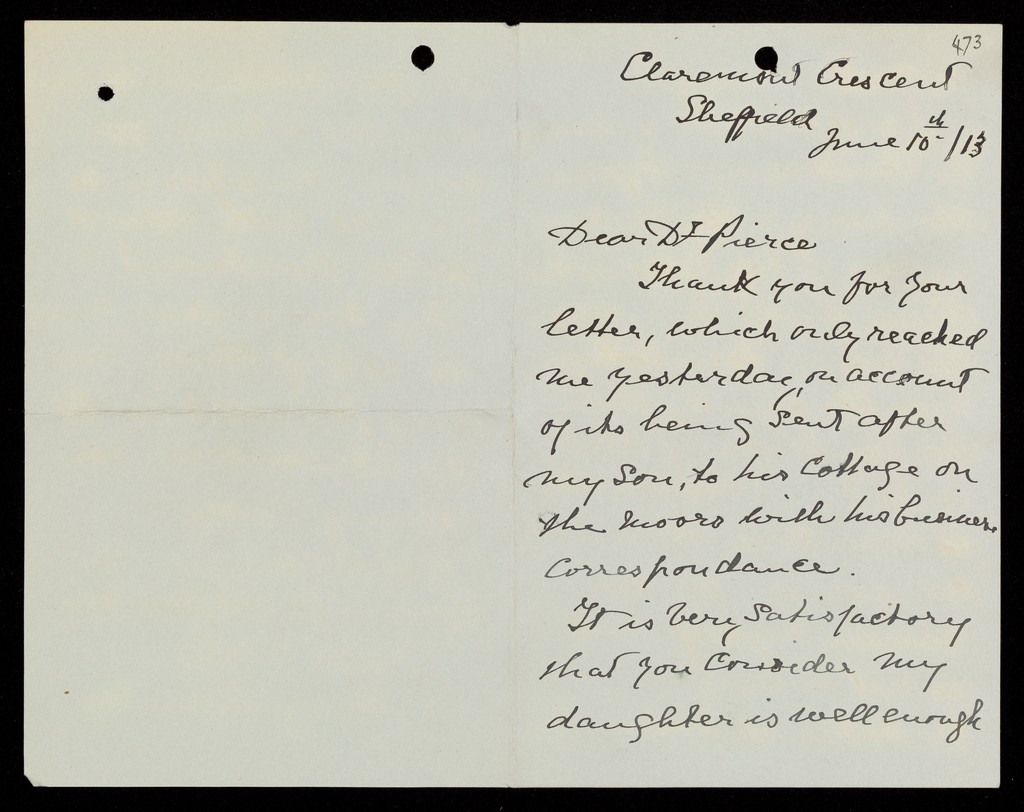 473
Claremont Crescent
Sheffield
June 10th/13
Dear Dr Pierce
Thank you for your
letter, which only reached
me yesterday, on account
of its being sent after
my Son, to his Cottage on
the moors with his business
Correspondance.
It is very Satisfactory
that you Consider my
daughter is well enough